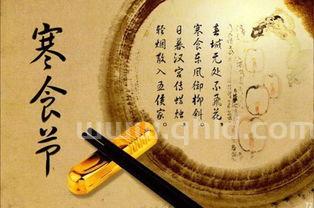 寒食节
春城无处不飞花
寒食东风御柳斜。
日暮汉宫传蜡烛。
轻烟散入五侯家。